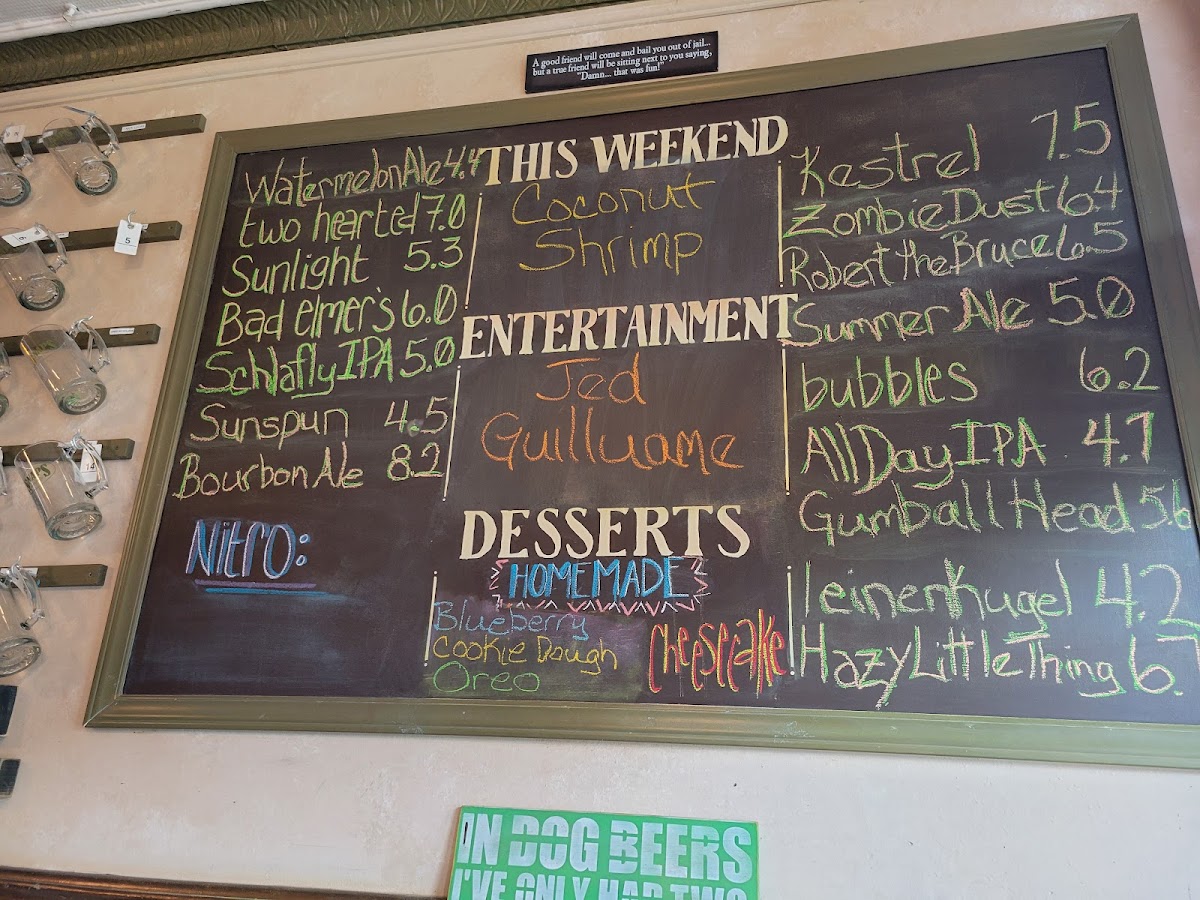 A good friend will come and bail you out of jail...
but a true friend will be sitting next to you saying,
"Damn... that was fun!"
Watermelon Ale 4.4
two hearted 7.0
Sunlight 5.3
Bad elmer's 6.0
Schlafly IPA 5.0
Sunspun 4.5
Bourbon Ale 8.2
Nitro:
THIS WEEKEND
Coconut
Shrimp
ENTERTAINMENT
Jed
Guilluame
DESSERTS
HOMEMADE
Blueberry
Cookie Dough
Oreo
Cheesecake
Kestrel 7.5
Zombie Dust 6.4
Robert the Bruce 6.5
Summer Ale 5.0
bubbles 6.2
All Day IPA 4.7
Gumball Head 5.6
leinenkugel 4.2
Hazy Little Thing 6.7
5
14
IN DOG BEERS
I'VE ONLY HAD TWO